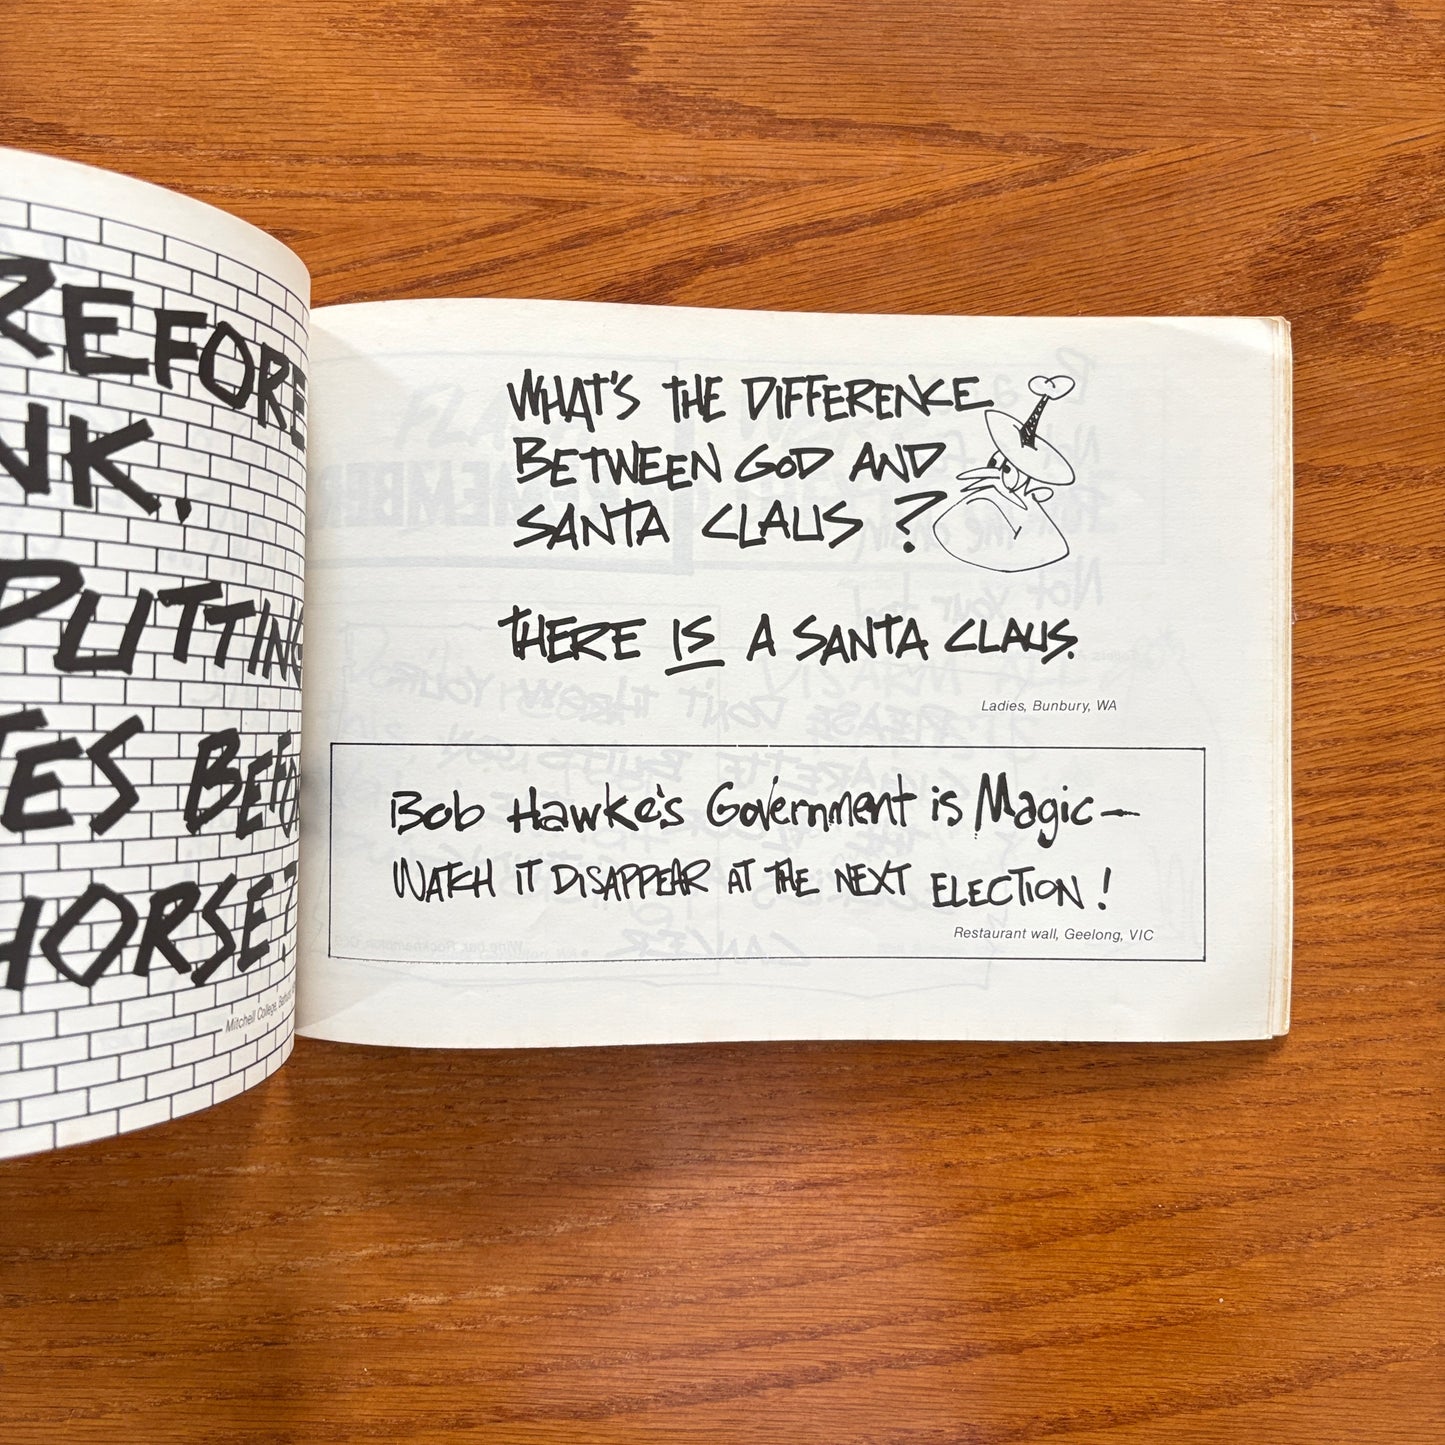 REFORE
NK.
PUTTING
TES BEFOR
HORSE?
Mitchell College,
WHAT'S THE DIFFERENCE
BETWEEN GOD AND
SANTA CLAUS?
THERE IS A SANTA CLAUS.
Ladies, Bunbury, WA
Bob Hawke's Government is Magic—
WATCH IT DISAPPEAR AT THE NEXT ELECTION!
Restaurant wall, Geelong, VIC